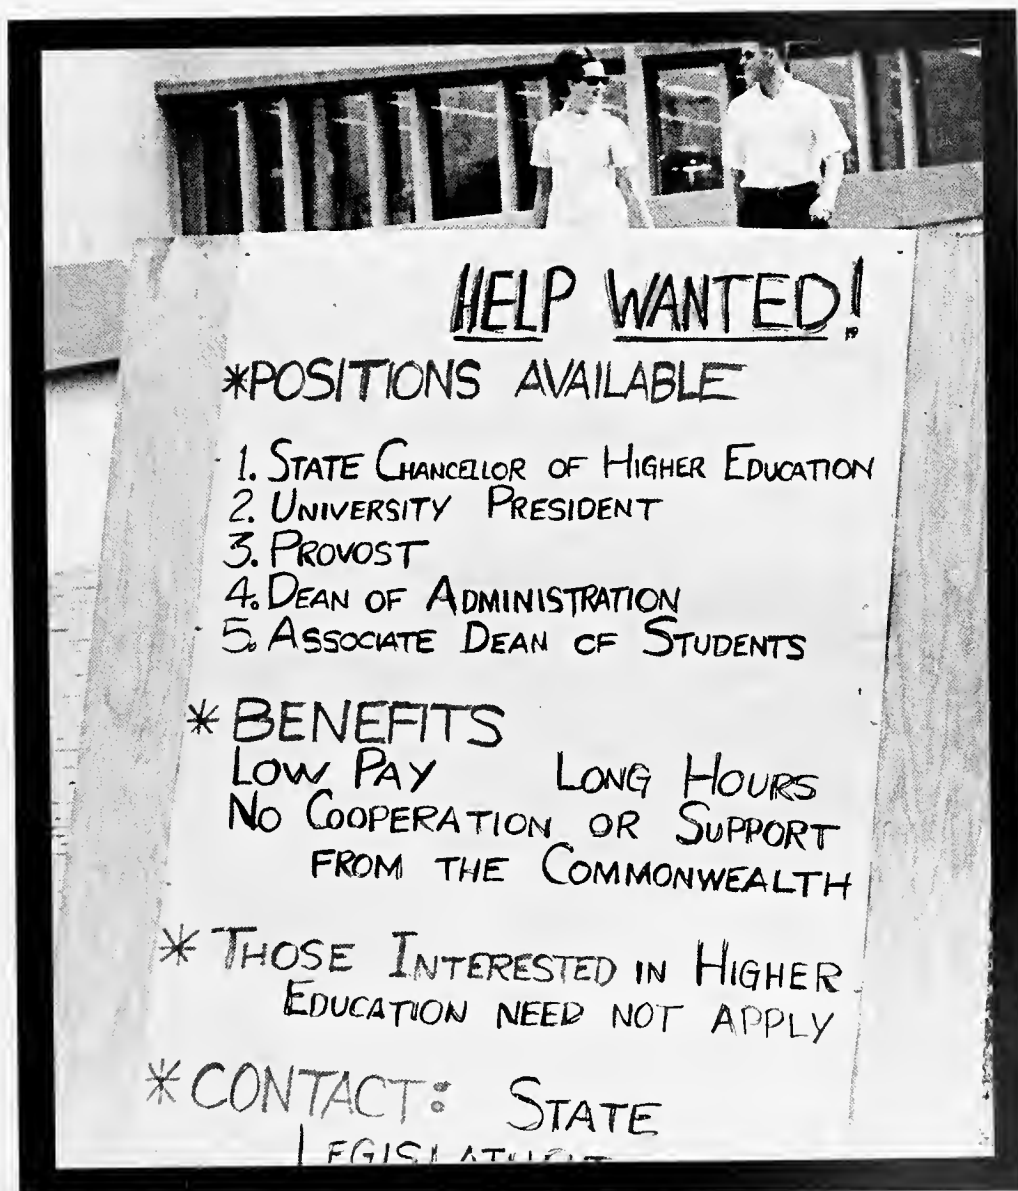 HELP WANTED!
*POSITIONS AVAILABLE
1. STATE CHANCELLOR OF HIGHER EDUCATION
2. UNIVERSITY PRESIDENT
3. PROVOST
4. DEAN OF ADMINISTRATION
5. ASSOCIATE DEAN OF STUDENTS
* BENEFITS
LOW PAY LONG HOURS
NO COOPERATION OR SUPPORT
FROM THE COMMONWEALTH
* THOSE INTERESTED IN HIGHER
EDUCATION NEED NOT APPLY
* CONTACT: STATE
LEGISLATURE